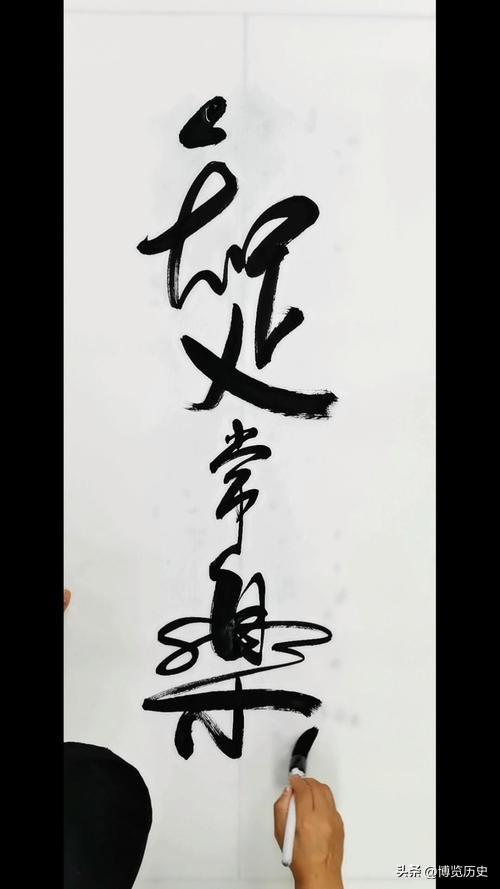 知足常樂
头条 @博览历史